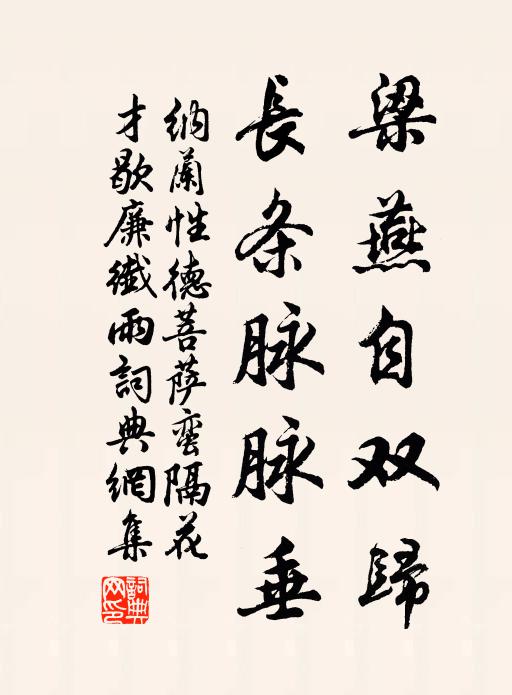 梁燕自双歸
長条脉脉垂
纳蘭性德菩萨蛮隔花
才歇廉纖雨詞典網集
詞典网印